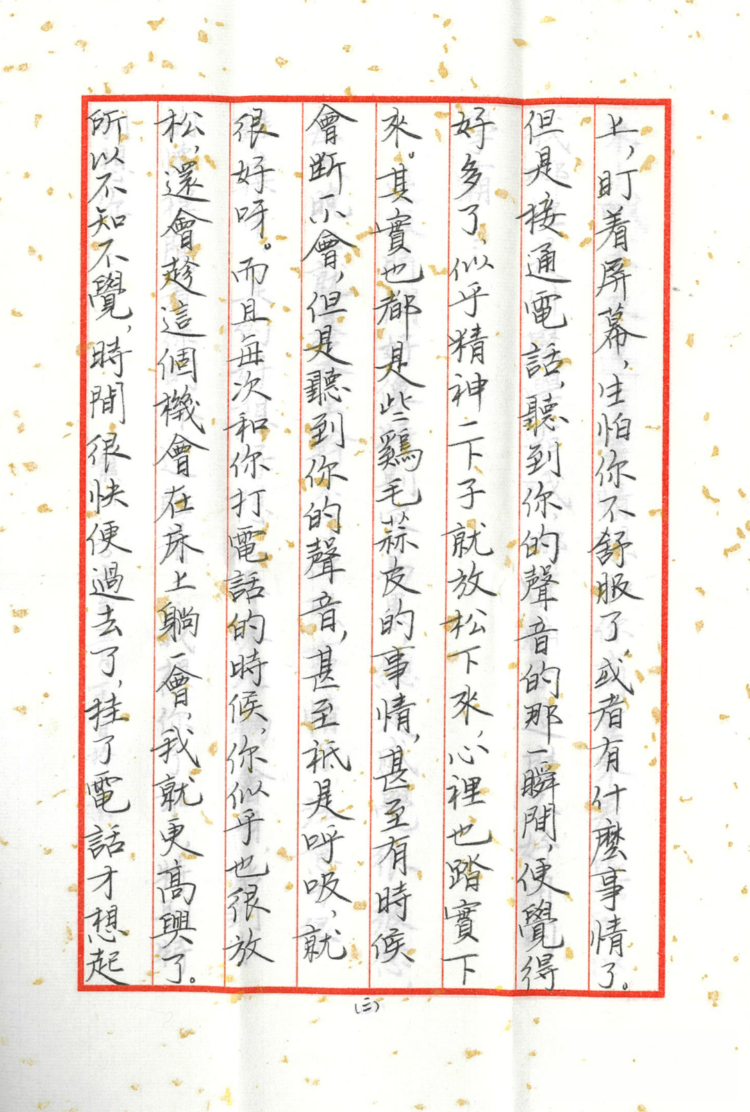 上，盯着屏幕，生怕你不舒服了，或者有什麼事情了。
但是接通電話，聽到你的聲音的那一瞬間，便覺得
好多了，似乎精神一下子就放松下來，心裡也踏實下
來。其實也都是些鷄毛蒜皮的事情，甚至有時候
會断一小會，但是聽到你的聲音，甚至祇是呼吸，就
很好呀。而且每次和你打電話的時候，你似乎也很放
松，還會趁這個機會在床上躺一會，我就更高興了。
所以不知不覺，時間很快便過去了，挂了電話才想起
（三）